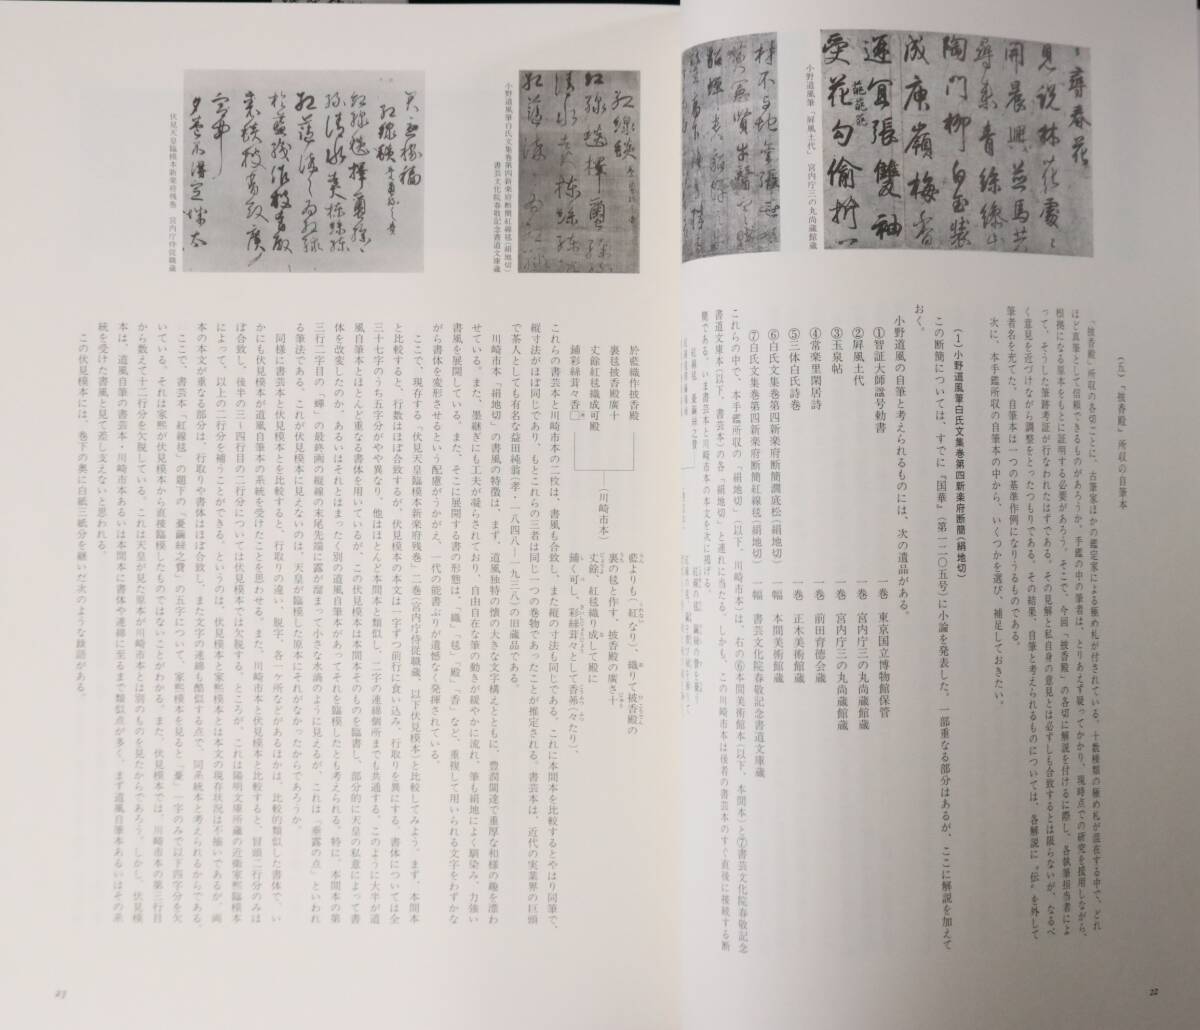 (五) 「披香殿」所収の自筆本
「披香殿」所収の各切ごとに、古筆家ほかの鑑定家による極め札が付されている。十数種類の極め札が混在する中で、どれ
ほど真筆として信頼できるものがあろうか。手鑑の中の筆者は、とりあえず疑ってかかり、現時点での研究を援用しながら、
根拠になる原本をもとに証明する必要があろう。そこで、今回「披香殿」の各切に解説を付けるに際し、各執筆担当者によ
って、そうした筆跡考証が行なわれたはずである。その見解と私自身の意見とは必ずしも合致するとは限らないが、なるべ
く意見を近づけながら調整をとったつもりである。その結果、自筆と考えられるものについては、各解説に〝伝〟を外して
筆者名を充てた。自筆本は一つの基準作例になりうるものである。
次に、本手鑑所収の自筆本の中から、いくつかを選び、補足しておきたい。
(1) 小野道風筆白氏文集巻第四新楽府断簡(絹地切)
この断簡については、すでに『国華』(第一二〇五号)に小論を発表した。一部重なる部分はあるが、ここに解説を加えて
おく。
小野道風の自筆と考えられるものには、次の遺品がある。
①智証大師諡号勅書 一巻 東京国立博物館保管
②屏風土代 一巻 宮内庁三の丸尚蔵館蔵
③玉泉帖 一巻 宮内庁三の丸尚蔵館蔵
④常楽里閑居詩 一巻 前田育徳会蔵
⑤三体白氏詩巻 一巻 正木美術館蔵
⑥白氏文集巻第四新楽府断簡澗底松(絹地切) 一幅 本間美術館蔵
⑦白氏文集巻第四新楽府断簡紅線毯(絹地切) 一幅 書芸文化院春敬記念書道文庫蔵
これらの中で、本手鑑所収の「絹地切」(以下、川崎市本)は、右の⑥本間美術館本(以下、本間本)と⑦書芸文化院春敬記念
書道文庫本(以下、書芸本)の各「絹地切」と連れに当たる。しかも、この川崎市本は後者の書芸本のすぐ直後に接続する断
簡である。いま書芸本と川崎市本の本文を次に掲げる。
小野道風筆「屏風土代」 宮内庁三の丸尚蔵館蔵
22
小野道風筆白氏文集巻第四新楽府断簡紅線毯(絹地切)
書芸文化院春敬記念書道文庫蔵
伏見天皇臨模本新楽府残巻 宮内庁侍従職蔵
於藍織作披香殿
裏毯披香殿廣十
丈餘紅毯織成可殿
鋪彩絲茸々香□
(川崎市本)
藍よりも(紅なり)、織りて披香殿の
裏の毯と作す、披香殿の廣さ十
丈餘、紅毯織り成して殿に
鋪く可し、彩絲茸々として香茀(々たり)、
これらの書芸本と川崎市本の二枚は、書風も合致し、また縦の寸法も同じである。これに本間本を比較するとやはり同筆で、
縦寸法がほぼ同じであり、もとこれらの三者は同じ一つの巻物であったことが推定される。書芸本は、近代の実業界の巨頭
で茶人としても有名な益田純翁(孝・一八四八―一九三八)の旧蔵品である。
川崎市本「絹地切」の書風の特徴は、まず、道風独特の懐の大きな文字構えとともに、豊潤闊達で重厚な和様の趣を漂わ
せている。また、墨継ぎにも工夫が凝らされており、自由自在な筆の動きが緩やかに流れ、筆も絹地によく馴染み、力強い
書風を展開している。また、そこに展開する書の形態は、「織」「毯」「殿」「香」など、重複して用いられる文字をわずかな
がら書体を変形させるという配慮がうかがえ、一代の能書ぶりが遺憾なく発揮されている。
ここで、現存する「伏見天皇臨模本新楽府残巻」二巻(宮内庁侍従職蔵、以下伏見模本)と比較してみよう。まず、本間本
と比較すると、行数はほぼ合致するが、伏見模本の本文は一字ずつ前行に食い込み、行取りを異にする。書体については全
三十七字のうち五字分がやや異なり、他はほとんど本間本と類似し、二字の連綿個所までも共通する。このように大半が道
風自筆本とほとんど重なる書体を用いているが、この伏見模本は本間本そのものを臨書し、部分的に天皇の私意によって書
体を改変したのか、あるいはそれとはまったく別の道風自筆本があってそれを臨模したとも考えられる。特に、本間本の第
三行二字目の「蟬」の最終画の縦線の末尾先端に露が溜まって小さな水滴のように見えるが、これは「垂露の点」といわれ
る筆法である。これが伏見模本に見えないのは、天皇が臨模した原本にそれがなかったからであろうか。
同様に書芸本と伏見模本とを比較すると、行取りの違い、脱字、各一ヶ所などがあるほかは、比較的類似した書体で、い
かにも伏見模本が道風自筆本の系統を受けたことを思わせる。また、川崎市本と伏見模本と比較すると、冒頭二行分のみは
ぼ合致し、後半の三～四行目の二行分については伏見模本では欠脱する。ところが、これは陽明文庫所蔵の近衛家熙臨模本
によって、以上の二行分を補うことができる。というのは、家熙模本と伏見模本とは本文の現存状況は不揃いであるが、両
本の本文が重なる部分は、行取りや書体はほぼ合致し、また文字の連綿も酷似する点で、同系統本と考えられるからである。
ここで、書芸本「紅線毯」の題下の「憂繭絲之費」の五字について、家熙模本を見ると、「憂」一字のみで以下四字分を欠
いている。それは家熙が伏見模本から直接臨模したものではないことがわかる。また、伏見模本では、川崎市本の第三行目
から数えて十二行分を欠脱している。これは天皇が見た原本が川崎市本とは別のものを見たからであろう。しかし、伏見模
本は、道風自筆の書芸本・川崎市本あるいは本間本に書体や連綿に至るまで類似点が多く、まず道風自筆本あるいはその系
統を受けた書風と見て差し支えないと思われる。
この伏見模本には、巻下の奥に白紙三紙分を継いだ次のような跋語がある。
23